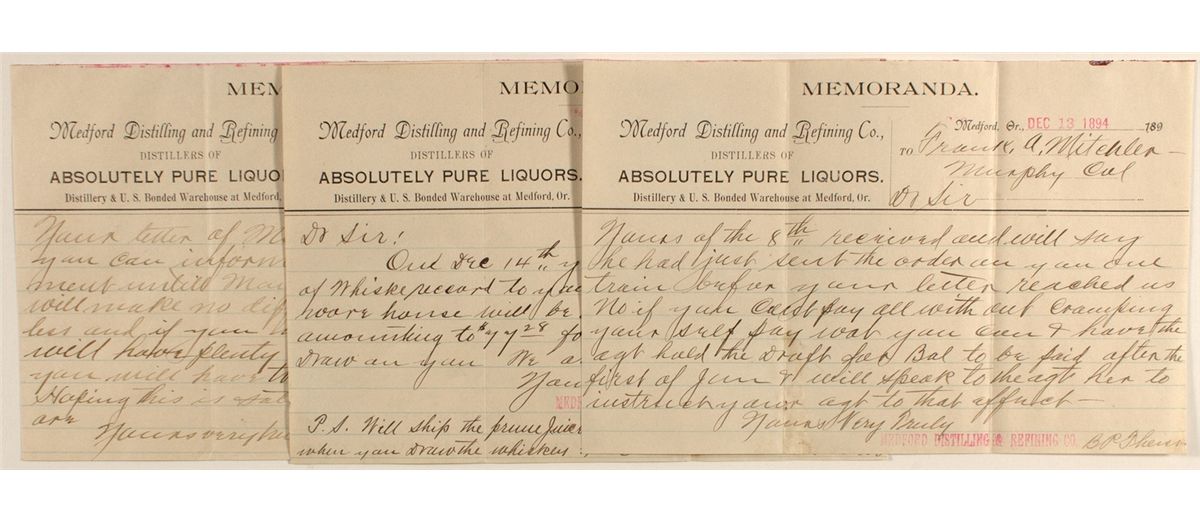 MEM
Medford Distilling and Refining
DISTILLERS OF
ABSOLUTELY PURE LIQUO
Distillery & U. S. Bonded Warehouse at Medford,
Your letter of M
you can inform
ment untill Ma
will make no dif
less and if you
will have plenty
you will have to
Hoping this is sat
are
Yours very tru
MEMO
Medford Distilling and Refining Co.,
DISTILLERS OF
ABSOLUTELY PURE LIQUORS.
Distillery & U. S. Bonded Warehouse at Medford, Or.
Dr Sir!
Our Dec 14th y
of Whiske record to you
woore house will be
amounting to $77 28 fo
Draw on you We a
You
MEDF
P. S. Will ship the prune Juice
when you Draw the whiskey
MEMORANDA.
Medford Distilling and Refining Co.,
DISTILLERS OF
ABSOLUTELY PURE LIQUORS.
Distillery & U. S. Bonded Warehouse at Medford, Or.
Medford, Or., DEC 13 1894 189
TO Frank, A, Mitchler
Murphy Cal
Dr Sir
Yours of the 8th received and will say
he had just sent the order on you one
train befor your letter reached us
No if you Cant pay all with out Cramping
your self pay wat you can & have the
agt hold the Draft for Bal to be paid after the
first of Jan & will speak to the agt her to
instruct your agt to that affect
Yours Very Truly
MEDFORD DISTILLING & REFINING CO.